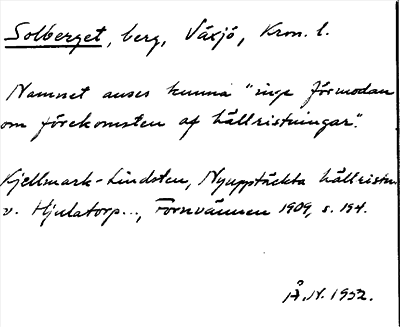 Solberget, berg, Växjö, Kron. l.
Namnet anses kunna "inge förmodan
om förekomsten af hällristningar".
Kjellmark-Lindsten, Nyupptäckta hällristn
v. Hjulatorp..., Fornvännen 1909, s. 194.
Å.N. 1952.